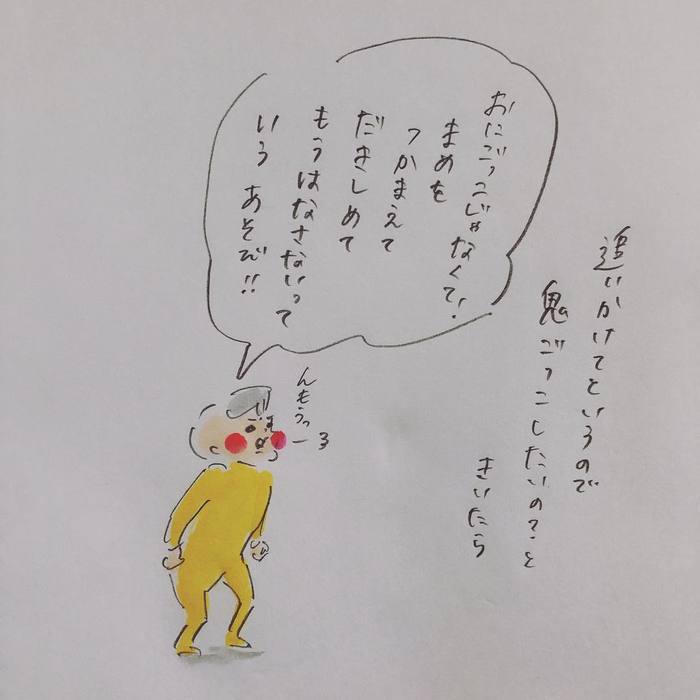 追いかけてというので
鬼ごっこしたいの？と
きいたら
おにごっこじゃなくて！
まめを
つかまえて
だきしめて
もうはなさないって
いう あそび!!
んもうっ